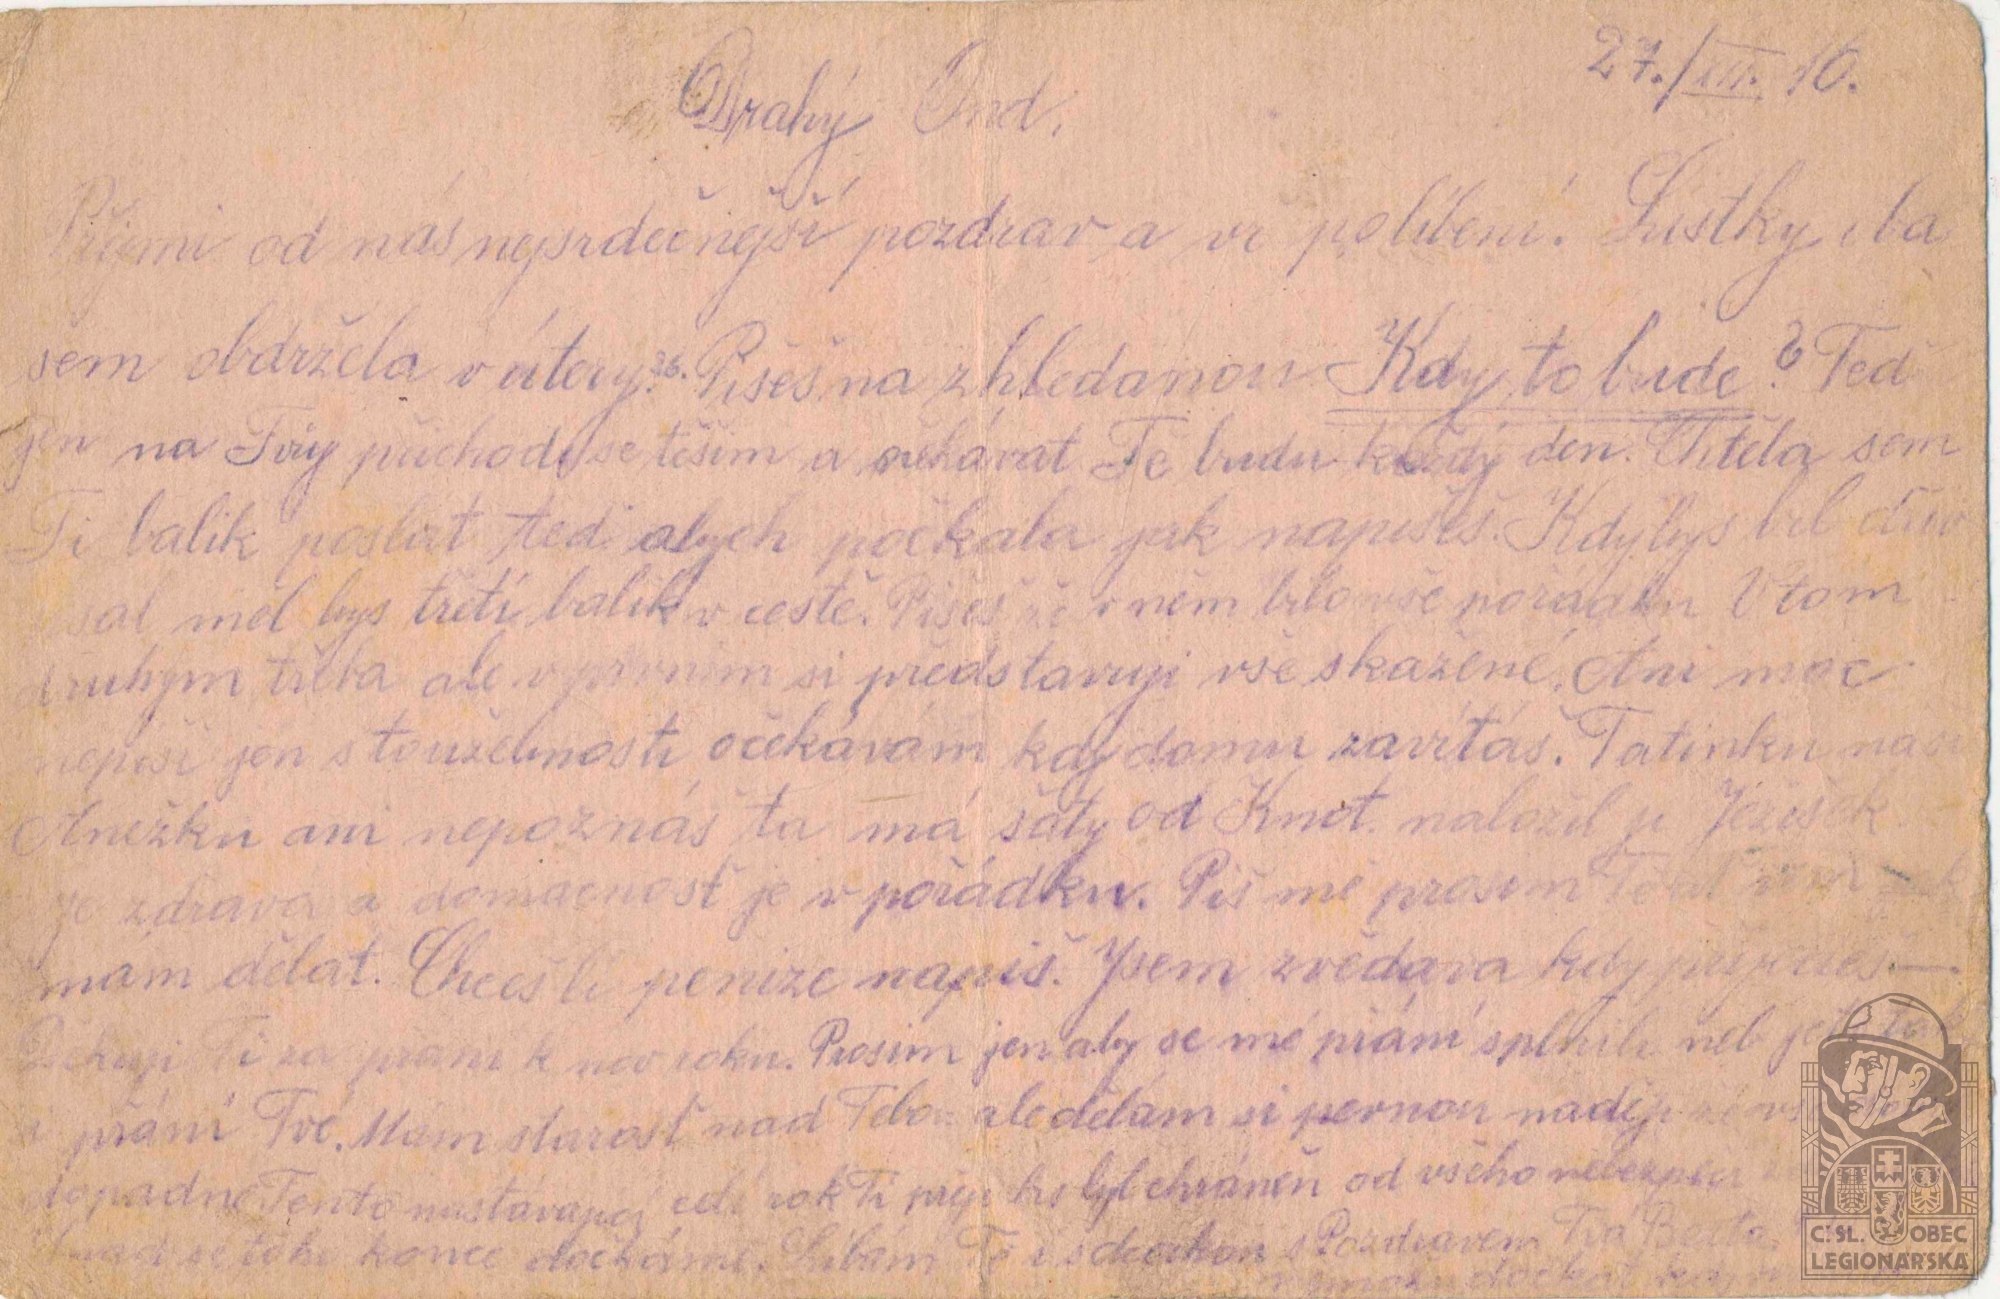 27./XII. 16.
Drahý Ind.
Přijmi od nás nejsrdečnější pozdrav a vř políbení. Lístky oba
sem obdržela v úterý 26. Píšeš na zhledanou Kdy to bude? Teď
jen na Tvůj příchod se těším a očekávat Tě budu každý den. Chtěla sem
Ti balik poslat teď abych počkala jak napíšeš. Kdybys byl dřív
psal měl bys třetí balik v cestě. Píšeš že v něm bylo vše pořádku V tom
druhým třeba ale v prvním si představuji vše skažené. Ani moc
nepíši jen s toužebností očekávám kdy domu zavítáš. Tatínku naši
Anežku ani nepoznáš ta má šaty od Knot. naložil ji Ježíšek
je zdravá a domacnosť je v pořádku. Piš mě prosím
mám dělat. Chcešli peníze napiš. Jsem zvědava kdy přijdeš—
Děkuji Ti za přání k nov roku. Prosím jen aby se mé přání splnili neb
i přání Tvé. Mám starosť nad Tebou ale dělám si pevnou naději že
dopadne Tento nastávající rok Ti přeji bys byl chráněn od všeho nebezpečí
snad se toho konce dočkáme. Líbám Tě i s s Pozdravem Tvá
ČSL. OBEC
LEGIONÁŘSKÁ